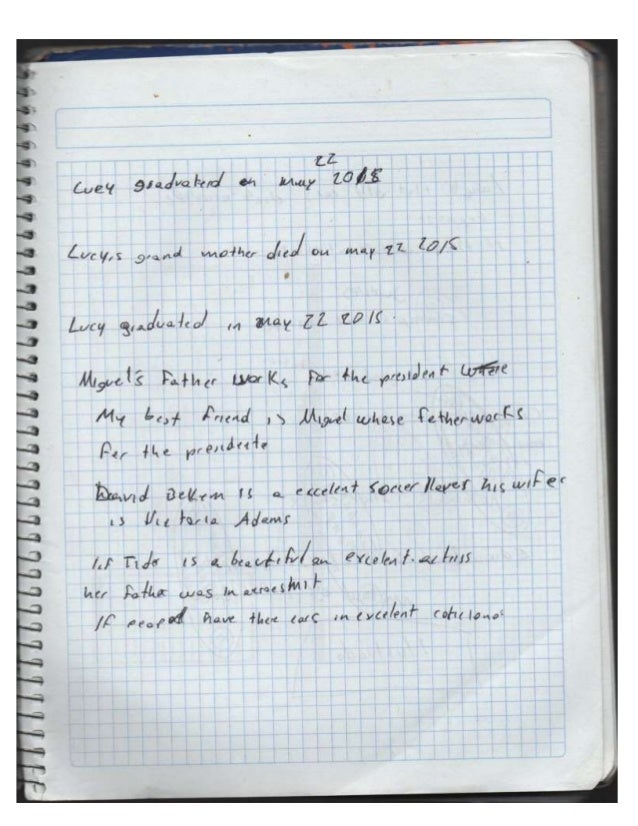 22
Lucy graduaterd on may 2015
Lucy,s grand mother died on may 22 2015
Lucy graduated in may 22 2015.
Miguel's Father works for the president where
My best friend is Miguel whose fether works
for the presidente
David Bekem is a excelent soccer player his wifer
is Victoria Adams
Lif Tidor is a beautiful an excelent actriss
her father was in
If peopol have there cars in excelent